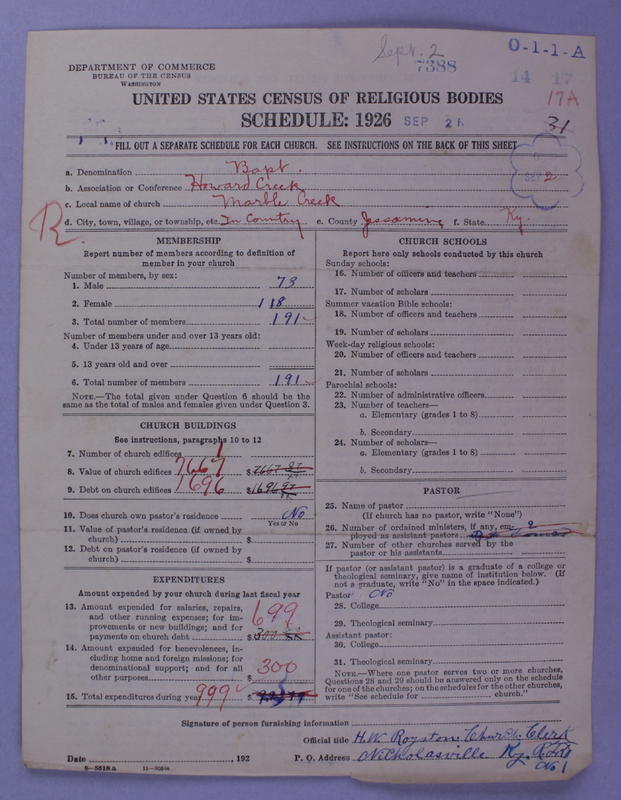 Sept. 2
7388
O-1-1-A
14 17
17A
31
DEPARTMENT OF COMMERCE
BUREAU OF THE CENSUS
WASHINGTON
UNITED STATES CENSUS OF RELIGIOUS BODIES
SCHEDULE: 1926 SEP 2
FILL OUT A SEPARATE SCHEDULE FOR EACH CHURCH. SEE INSTRUCTIONS ON THE BACK OF THIS SHEET
SEP 2
a. Denomination Bapt.
b. Association or Conference Howard Creek
c. Local name of church Marble Creek
d. City, town, village, or township, etc. In Country e. County Jessamine f. State Ky.
R.
MEMBERSHIP
Report number of members according to definition of
member in your church
Number of members, by sex:
1. Male 73
2. Female 118
3. Total number of members 191
Number of members under and over 13 years old:
4. Under 13 years of age
5. 13 years old and over
6. Total number of members 191
NOTE.—The total given under Question 6 should be the
same as the total of males and females given under Question 3.
CHURCH BUILDINGS
See instructions, paragraphs 10 to 12
7. Number of church edifices 1
8. Value of church edifices 7667 $ 7667
9. Debt on church edifices 1696 $ 1696
10. Does church own pastor's residence No
Yes or No
11. Value of pastor's residence (if owned by
church) $
12. Debt on pastor's residence (if owned by
church) $
EXPENDITURES
Amount expended by your church during last fiscal year
13. Amount expended for salaries, repairs,
and other running expenses; for im-
provements or new buildings; and for
payments on church debt 699 $ 300
14. Amount expended for benevolences, in-
cluding home and foreign missions; for
denominational support; and for all
other purposes $ 300
15. Total expenditures during year 999 $
CHURCH SCHOOLS
Report here only schools conducted by this church
Sunday schools:
16. Number of officers and teachers
17. Number of scholars
Summer vacation Bible schools:
18. Number of officers and teachers
19. Number of scholars
Week-day religious schools:
20. Number of officers and teachers
21. Number of scholars
Parochial schools:
22. Number of administrative officers
23. Number of teachers—
a. Elementary (grades 1 to 8)
b. Secondary
24. Number of scholars—
a. Elementary (grades 1 to 8)
b. Secondary
PASTOR
25. Name of pastor
(If church has no pastor, write "None")
26. Number of ordained ministers, if any, em-
ployed as assistant pastors
27. Number of other churches served by the
pastor or his assistants
If pastor (or assistant pastor) is a graduate of a college or
theological seminary, give name of institution below. (If
not a graduate, write "No" in the space indicated.)
Pastor: No
28. College
29. Theological seminary
Assistant pastor:
30. College
31. Theological seminary
NOTE.—Where one pastor serves two or more churches,
Questions 28 and 29 should be answered only on the schedule
for one of the churches; on the schedules for the other churches,
write "See schedule for church."
Signature of person furnishing information
Official title H.W. Royston Church Clerk
Date , 192 P. O. Address Nicholasville Ky.
No 1
8-5518a